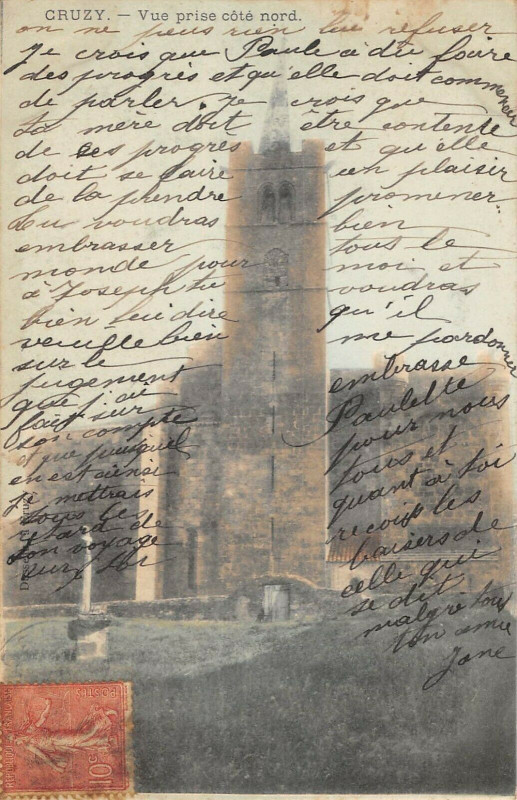 CRUZY. — Vue prise côté nord.
on ne peus rien lui refuser
Je crois que Paule a du faire
des progrès et qu'elle doit commencer
de parler. Je crois que
La mère doit être contente
de ses progrès et qu'elle
doit se faire un plaisir
de la prendre promener.
Tu voudras bien
embrasser tous le
monde pour moi et
à Joseph tu voudras
bien lui dire qu'il
veuille bien me pardonner
sur le
jugement
que j'ai
fait sur
son compte
et que puisquel
en est ainsi
je mettrais
tous les
tard de
ton voyage
sur toi
embrasse
Paulette
pour nous
tous et
quant à toi
reçois les
baisers de
celle qui
se dit
malgré tout
ton amie
Jane
POSTES
10c